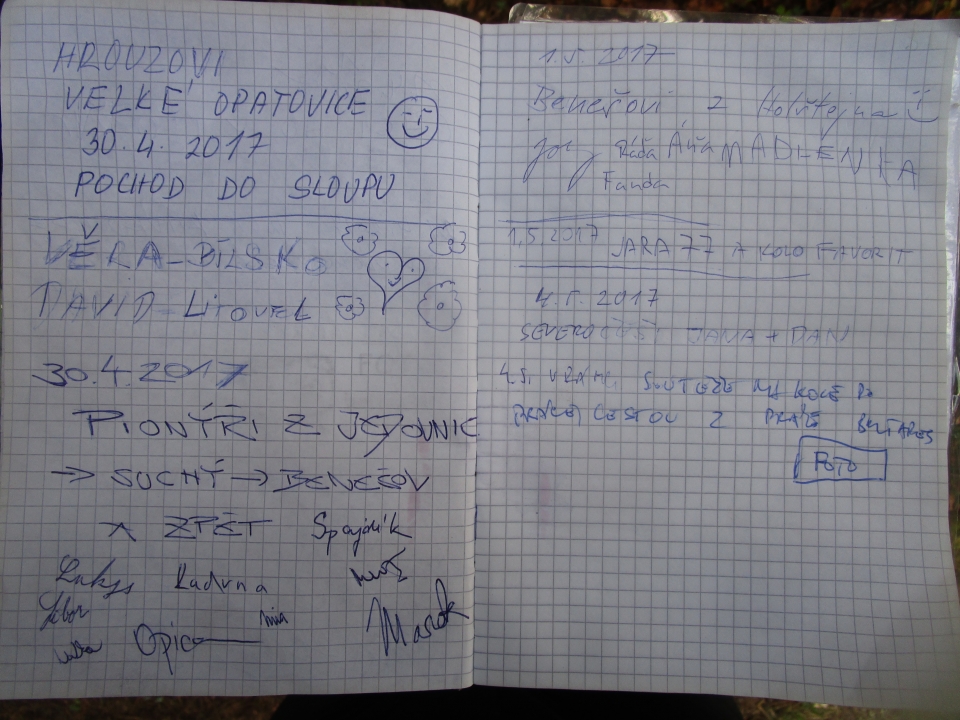 HROUZOVI
VELKÉ OPATOVICE
30.4. 2017
POCHOD DO SLOUPU
VĚRA-BÍLSKO
DAVID-LITOVEL
30.4.2017
PIONÝŘI Z JEDOVNIC
→ SUCHÝ → BENEŠOV
A ZPĚT Spajdlík
Radvna
Opica Marek
1.5. 2017
Benešovi z Holštejna
Ráďa Áňa MADLENKA
Fanda
1.5.2017 JARA 77 A KOLO FAVORIT
4.5. 2017
JANA + DAN
4.5. NA KOLE
CESTOU Z
FOTO